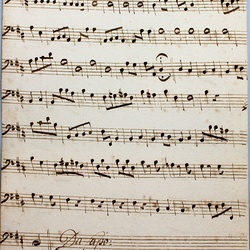 Da capo.